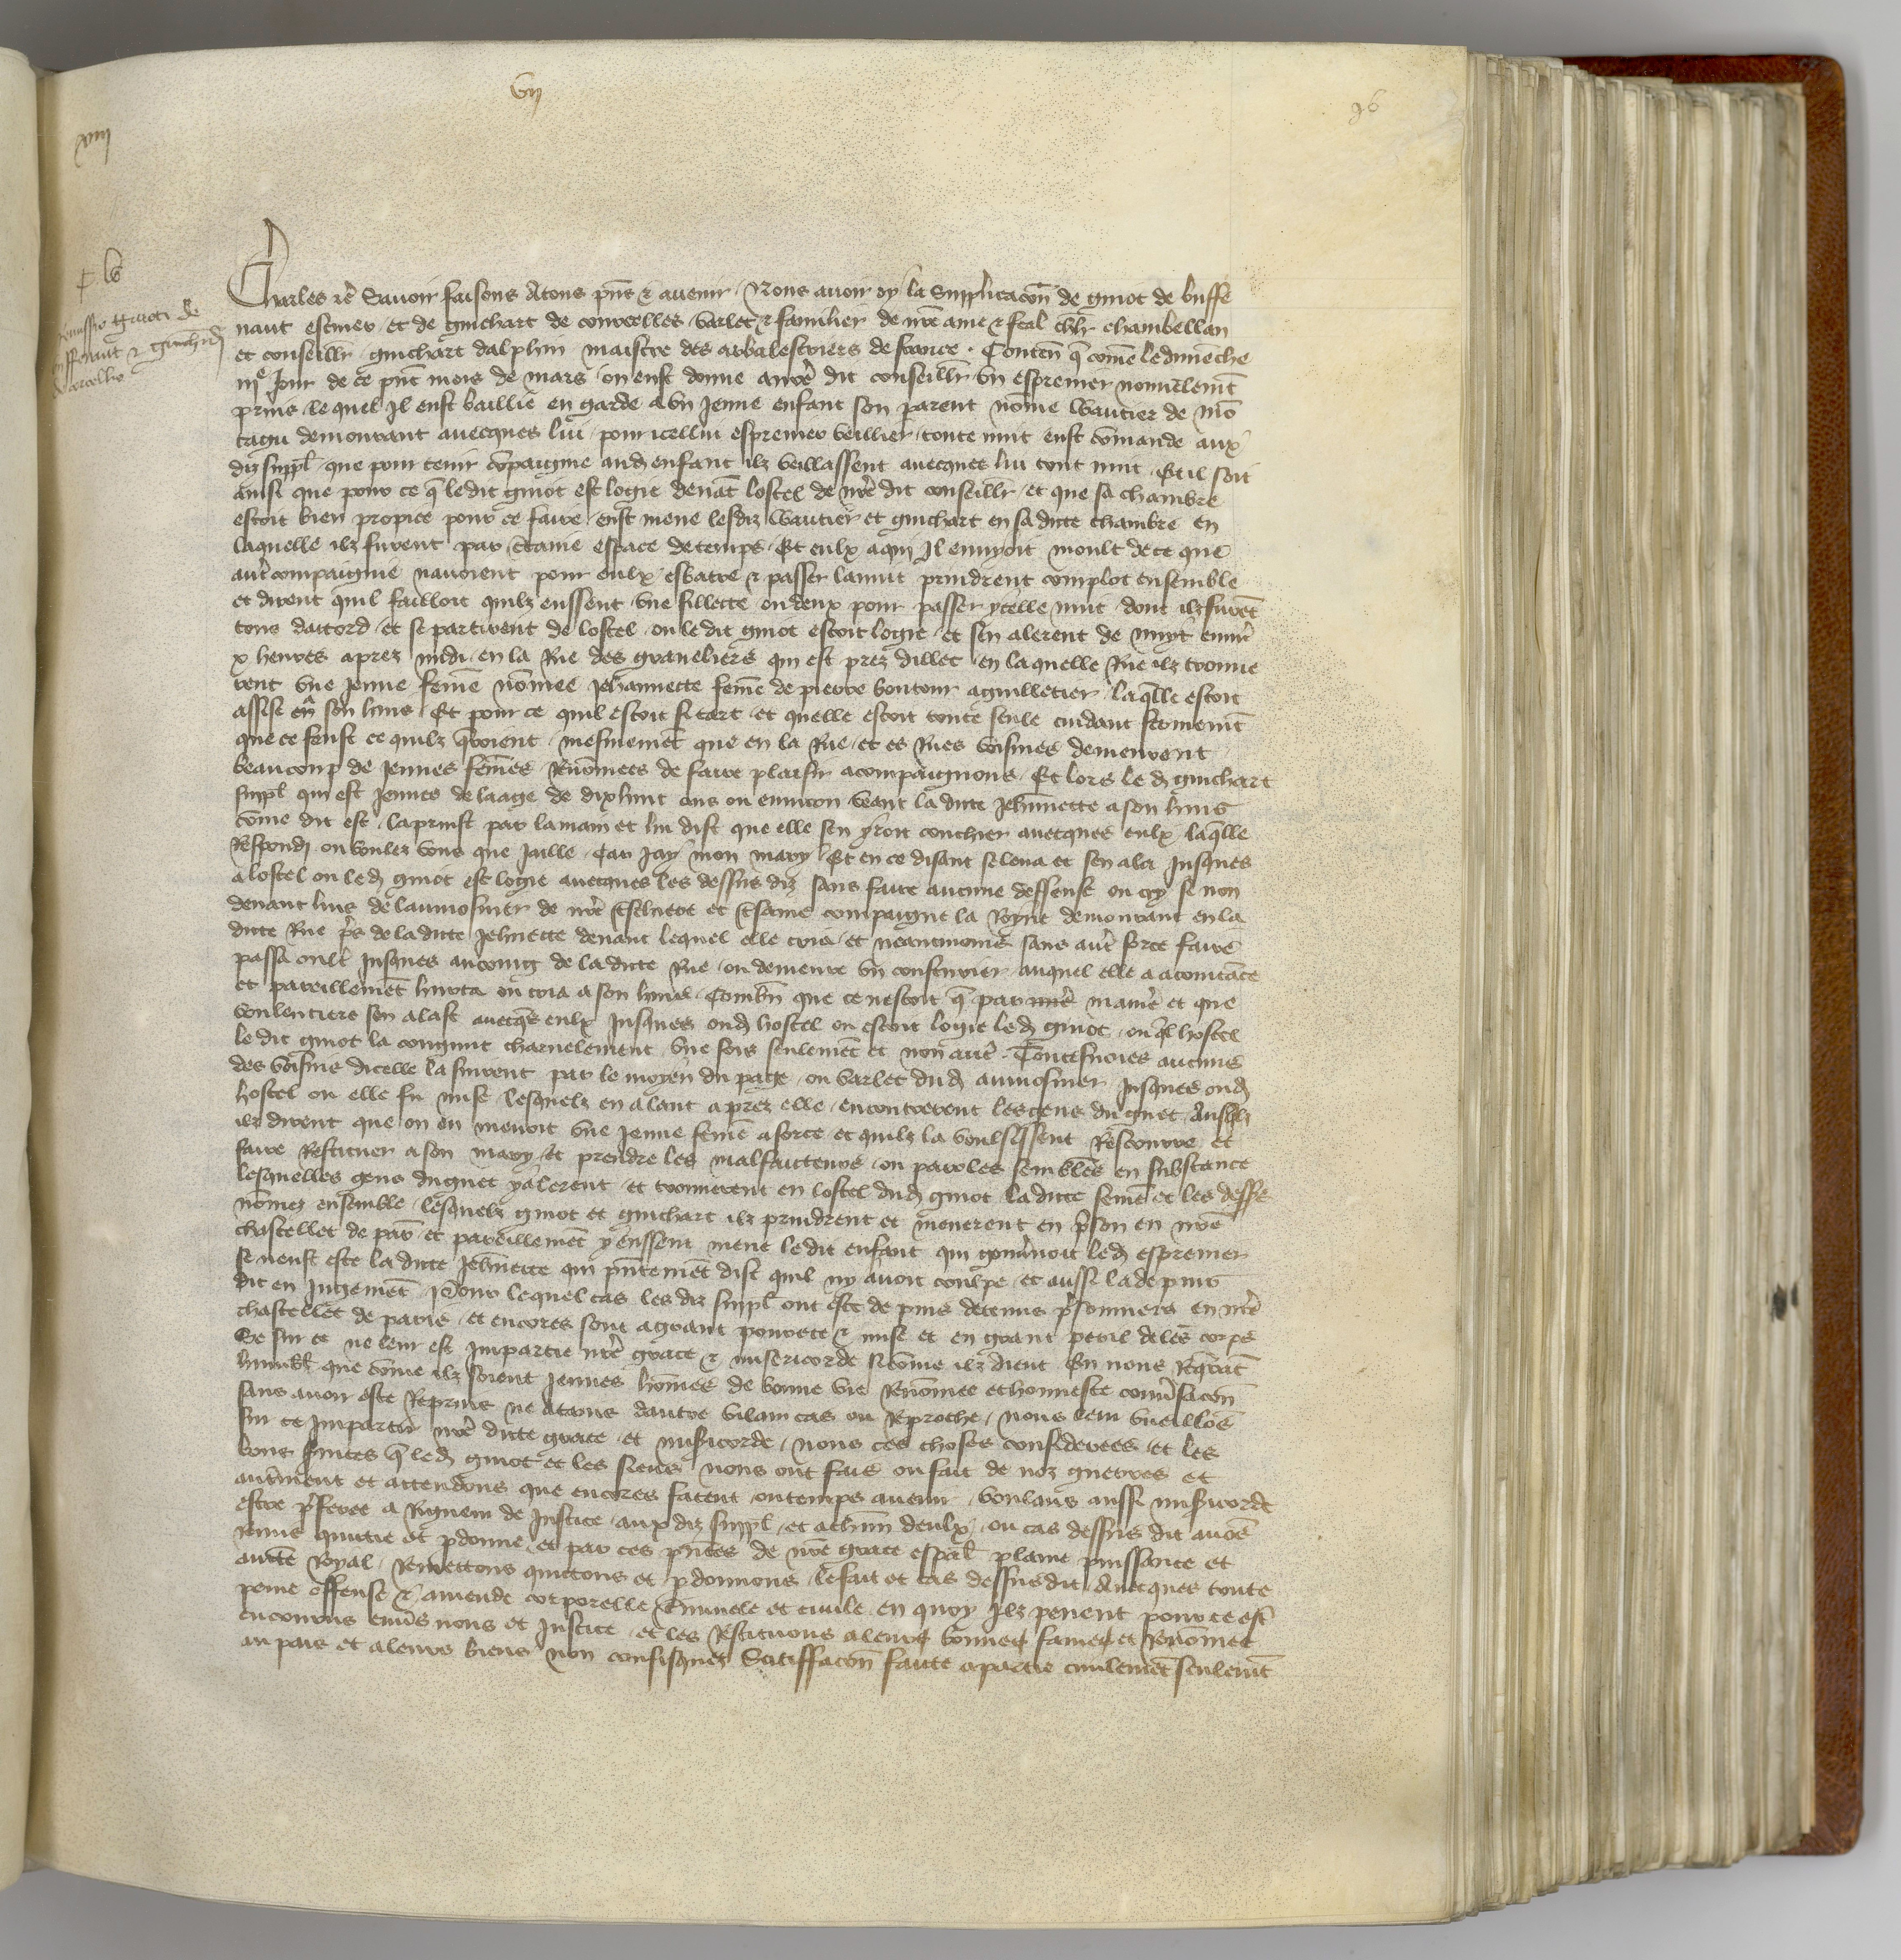 vij
96
xiiij
p lb
Remissio Guioti de
buffenant & Guichardi
de corcellis
Charles etc Savoir faisons Atous pñs & avenir Nous avoir oy la Supplicacoñ de guiot de buffe
naut escuier et de guichart de courcelles varlet & familier de nre ame & feal chlr chambellan
et conseillr guichart dalphin maistre des arbalestriers de france . Conteñ q̃ cõme le dimẽche
iije Jour de ce pñt mois de mars on eust donne a nrẽ dit conseillr un esprevier nouvelemt
prins lequel Il eust baillie en garde a un Jeune enfant son parent nõme wautier de mõ
tagu demourant avecques lui pour icellui esprevier veillier toute nuit eust cõmande aux
diz suppl que pour tenir cõpaignie aud enfant ilz veillassent avecques lui tout nuit Et il soit
ainsi que pour ce q̃ ledit guiot est logie devãt lostel de nrẽ dit conseillr et que sa chambre
estoit bien propice pour ce faire eust mene lesdiz wautier et guichart en sa dicte chambre en
laquelle ilz furent par c̃taine espace de temps Et eulx aqui Il ennyoit moult de ce que
autr̃ compaignie navoient pour eulx esbatre & passer la nuit prindrent complot ensemble
et dirent quil failloit quilz eussent une fillette ou deux pour passer ycelle nuit dont ilz furẽt
tous dacord et se partirent de lostel ou le dit guiot estoit logie et sen alerent de nuyt envirõ
x heures aprez midi en la Rue des graveliers qui est prez dillec en laquelle Rue ilz trouve
rent une Jeune fem̃e nõmee Jehannette fem̃e de pierre boutour aguilletier laq̃lle estoit
assise en son huis Et pour ce quil estoit si tart et quelle estoit toute seule cuidant fermemẽt
que ce feust ce quilz q̃roient mesmemẽt que en la Rue et es Rues voisines demeurent
beaucoup de Jeunes fem̃es Renõmees de faire plaisir a compaignons Et lors le d guichart
suppl qui est Jeunes de laage de dixhuit ans ou environ veant la dicte Jehñnette a son huis
cõme dit est la prinst par la main et lui dist que elle sen yroit couchier avecques eulx laq̃lle
Respondi ou voulez vous que Jaille Car Jay mon mary Et en ce disant se leva et sen ala Jusques
a lostel ou led guiot est logie avecques les dessus diz sans faire aucune deffense ou cry se non
devant luis de laumosnier de nrẽ treschiere et tresamee compaigne la Royne demourant en la
dicte Rue p̃s de la dicte Jehñnette devant lequel elle cria et neantmoins sans autr̃ force faire
passa oultr̃ Jusques au coing de la dicte Rue ou demeure un cousturier auquel elle a acointãce
et pareillemẽt hurta ou cria a son huis Combñ que ce nestoit q̃ par maniẽ et que
voulentiers sen alast avecq̃s eulx Jusques oud hostel ou estoit logie led guiot ouq̃l hostel
le dit guiot la congnut charnelement une fois seulemẽt et non autr̃ . Toutesvoies aucuns
des voisins dicelle la suirent par le moyen du page ou varlet dud aumosnier Jusques oud
hostel ou elle fu mise lesquelz en alant aprez elle encontrerent les gens du guet Ausqlz
ilz dirent que on en menoit une Jeune fem̃e a force et quilz la voulsissent Rescourre et
faire Restituer a son mary et prendre les malfaicteurs ou paroles semblẽs en substance
lesquelles gens du guet y alerent et trouverent en lostel dud guiot la dicte fem̃e et les dessus
nõmez ensemble lesquelz guiot et guichart ilz prindrent et menerent en p̃son en nrẽ
chastellet de par et pareillemẽt y eussent mene ledit enfant qui gouv̾noit led esprevier
se neust este la dicte Jehñnette qui pñtemẽt dist quil ny avoit coulpe et aussi la depuis
dit en Jugemẽt pour lequel cas les diz suppl ont este depuis detenus p̃sonniers en nrẽ
chastellet de paris et encores sont a grant povrete & mise et en grant peril de lẽs corps
Se sur ce ne leur est Impartie nrẽ grace & misericorde si cõme ilz dient En nous Req̃rãt
humblt que cõme ilz soient Jeunes hom̃es de bonne vie Renõmee et honneste conv̾sacoñ
sans avoir este Reprins ne atains dautre vilain cas ou Reproche nous leur vueillõs
sur ce Impartir nrẽ dicte grace et misẽicorde nous ces choses considerees et les
bons s̾vices q̃ led guiot et les siens nous ont fais ou fait de noz guerres et
autrẽment et attendons que encores facent ou temps avenir voulans aussi misẽicorde
estre p̃feree a Rigueur de Justice aux diz suppl et a chũn deulx ou cas dessus dit avõs
Remis quictie et pdonne et par ces pñtes de nrẽ grace espãl plaine puissance et
aucte Royal Remettons quictons et pdonnons le fait et cas dessusdit Avecques toute
peine offense & amende corporelle c̃minele et civile en quoy Ilz pevent pour ce estr̃
encourus env̾s nous et Justice et les Restituons a leurs bonnes fames et Renõmees
au pais et a leurs biens non confisquez Satiffacoñ faicte a partie civilemẽt seulemt